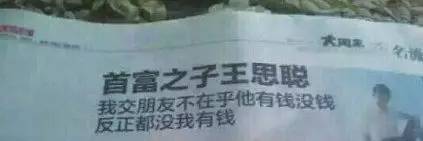 首富之子王思聪
我交朋友不在乎他有钱没钱
反正都没我有钱